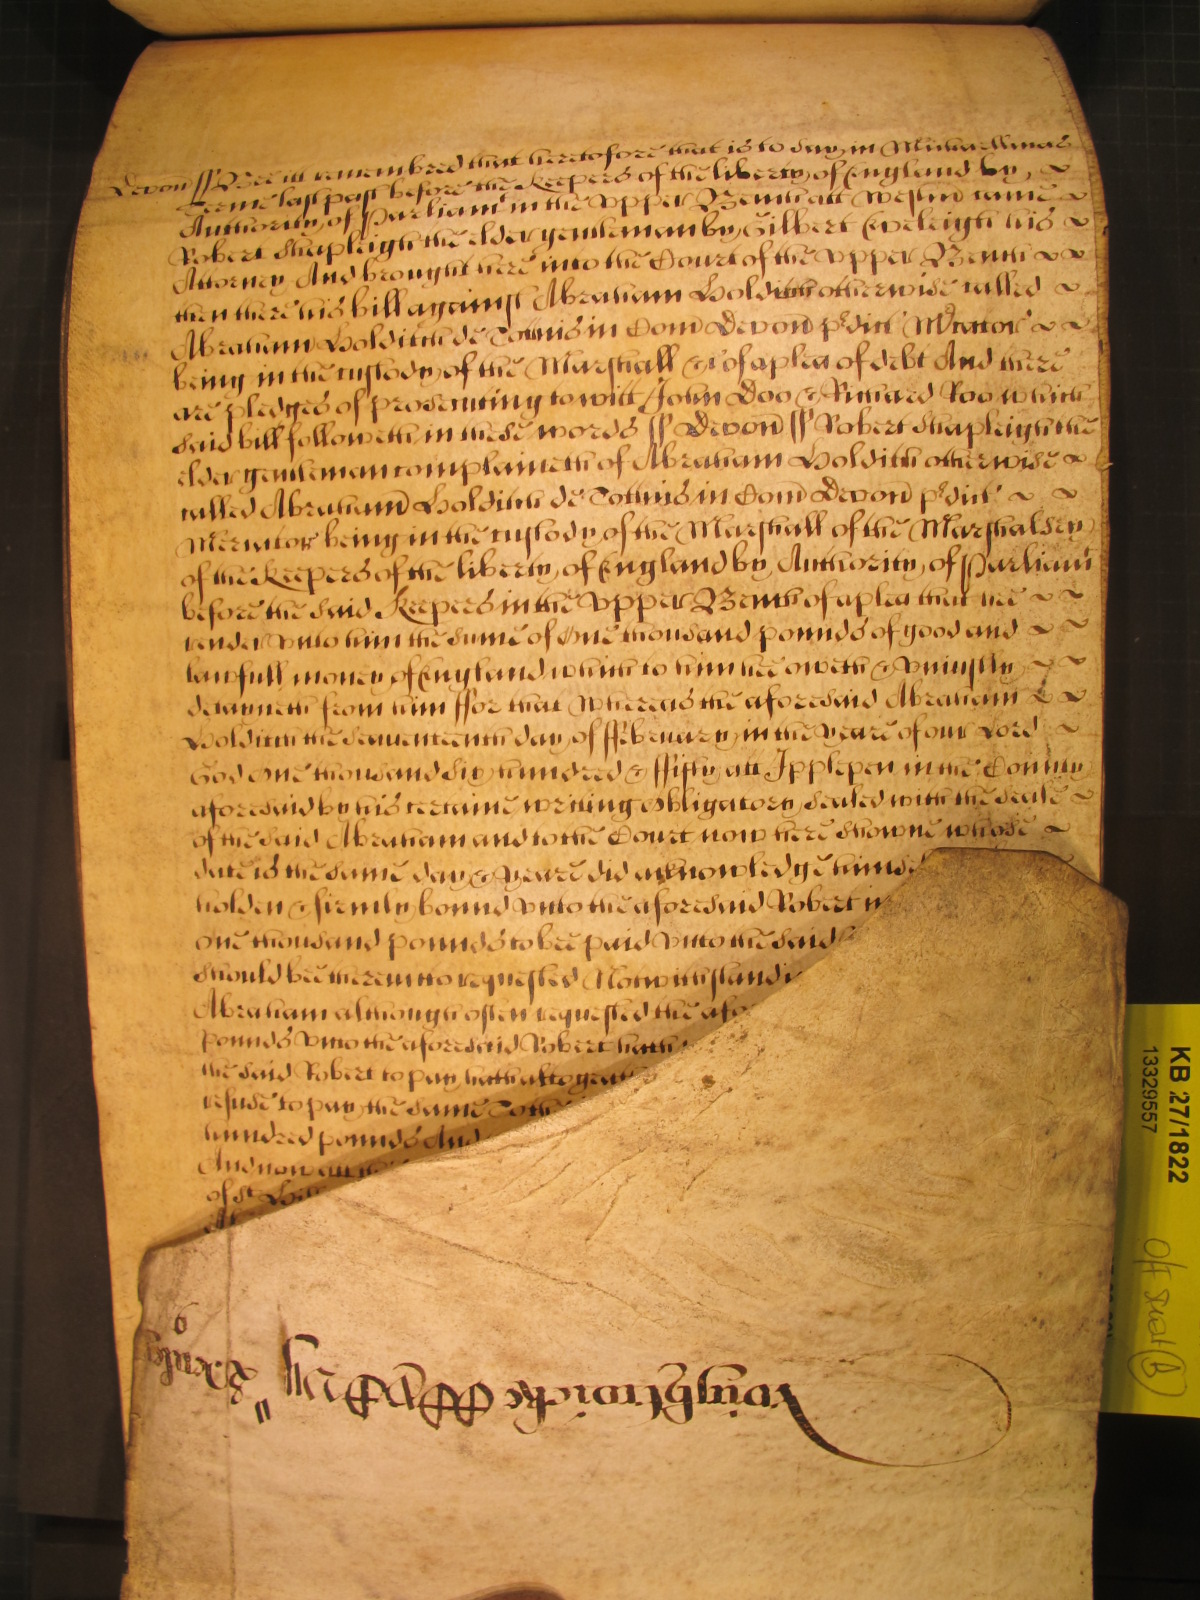 Devon ss Bee it remembred that heretofore that is to day in Michaellmas
Terme last past before the Keepers of the liberty of England by
Authority of Parliamt in the upper Bench att Westmr came
Robert Shapleigh the elder gentleman by Gilbert Eveleigh his
Attorney And brought here into the Court of the upper Bench
then there his bill against Abraham Holditch otherwise called
Abraham Holditch de Totnis in Com Devon pdict Mrcator
being in the custody of the Marshall &c of a plea of debt And there
are pledges of prosecuting to witt John Doo & Richard Roo which
said bill followeth in these words ss Devon ss Robert Shapleigh the
elder gentleman complaineth of Abraham Holditch otherwise
called Abraham Holditch de Tottnis in Com Devon pdict
Mercator being in the custody of the Marshall of the Marshalsey
of the Keepers of the liberty of England by Authority of Parliamt
before the said Keepers in the upper Bench of a plea that hee
render unto him the sume of One thousand pounds of good and
lawfull money of England which to him hee oweth & uniustly
detayneth from him ffor that Whereas the aforesaid Abraham
Holditch the seaventeenth day of ffebruary in the yeare of our Lord
God One thousand six hundred & ffifty att Ipplepen in the County
aforesaid by his certaine writing obligatory sealed with the seale
of the said Abraham and to the Court now here showne whose
date is the same day & yeare did acknowledge himse
holden & firmly bound unto the aforesaid Robert in
one thousand pounds to bee paid unto the said
should bee thereunto requested Notwithstandi
Abraham although often requested the afor
pounds unto the aforesaid Robert hath
the said Robert to pay hath altogeath
refuse to pay the same To the
hundred pounds And
And now att
of st Hil
KB 27/1822
13329557